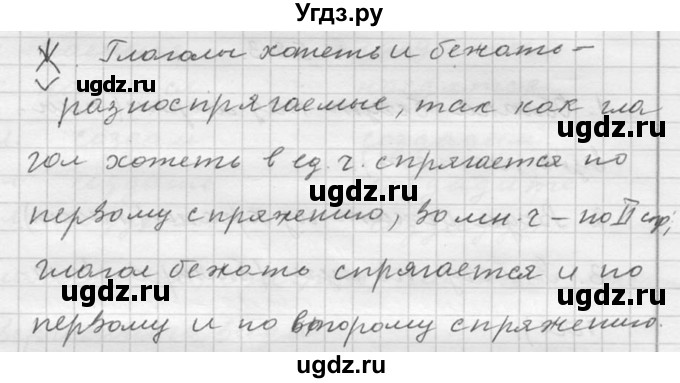 Угдз.ру
Глаголы хотеть и бежать –
ugdz.ru ugdz.ru
разноспрягаемые, так как гла
ugdz.ru
гол хотеть в ед. ч. спрягается по
ugdz.ru
первому спряжению, во мн. ч – по II спр;
глагол бежать спрягается и по
ugdz.ru ugdz.ru
первому и по второму спряжению.
ugdz.ru